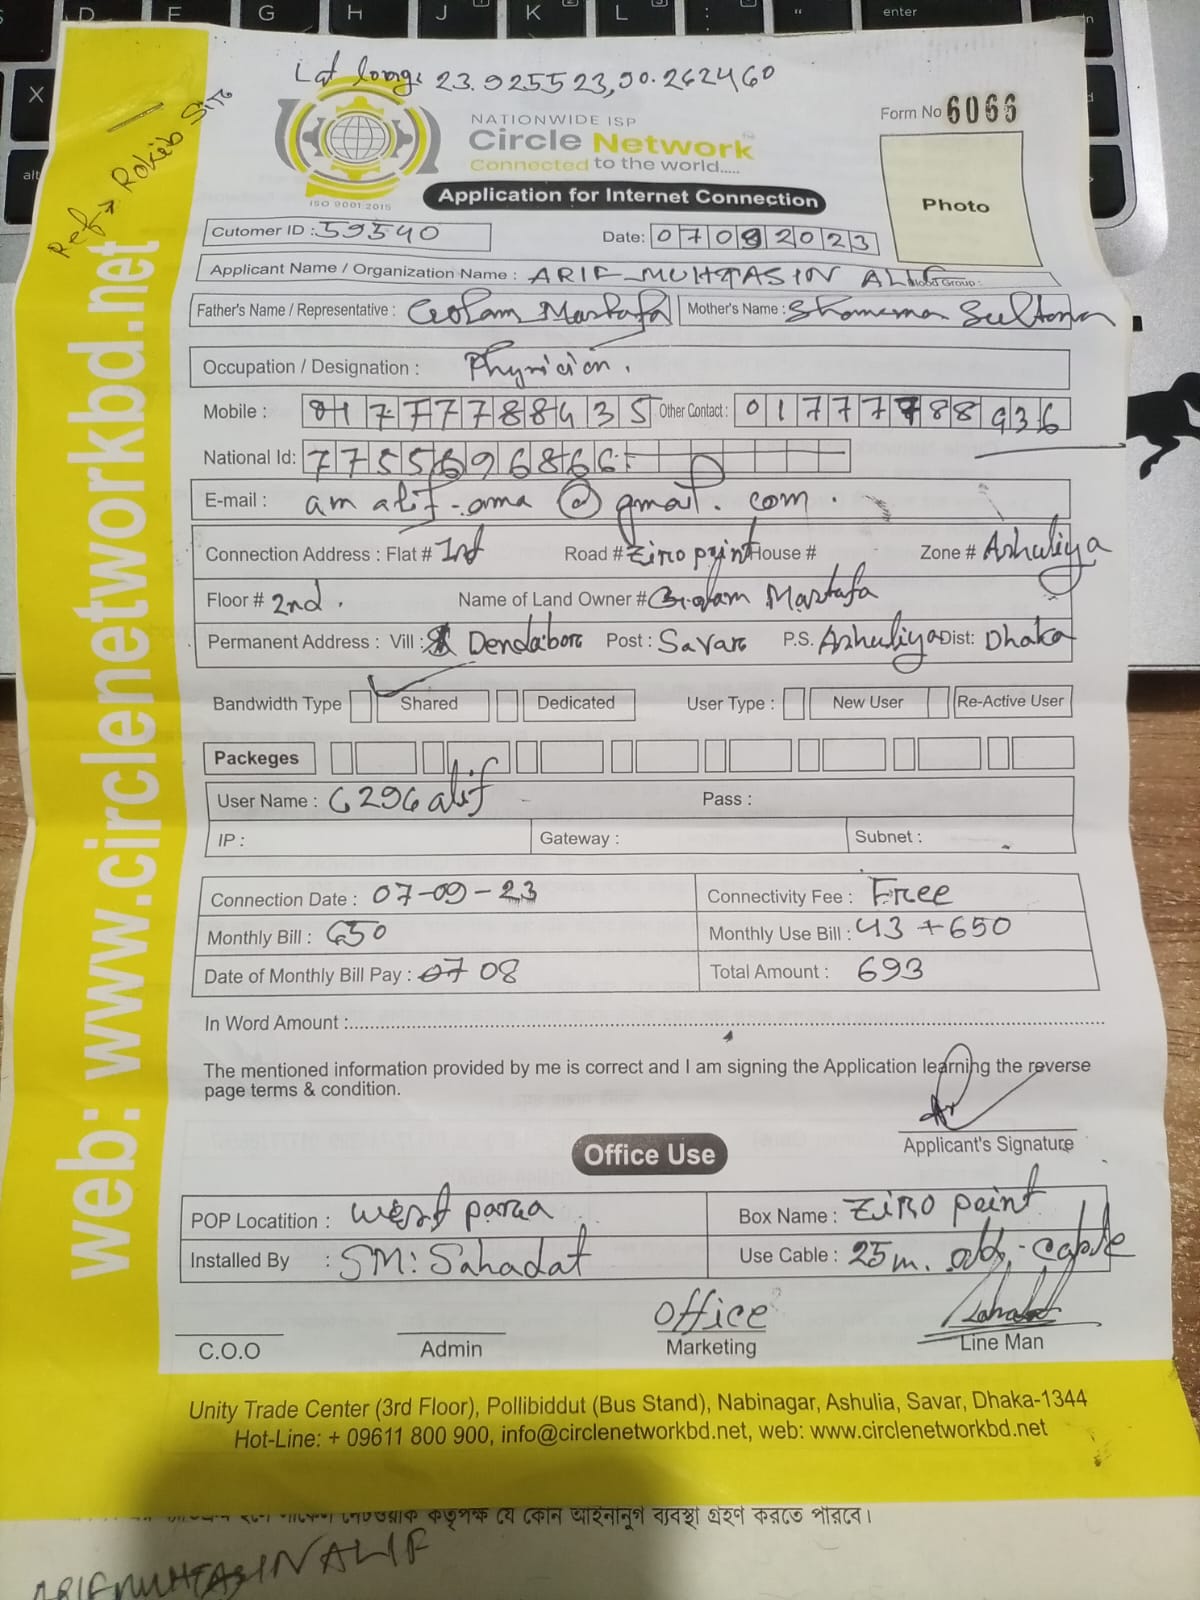 Lat long: 23.925523,90.262460
Ref → Rakib Sir
NATIONWIDE ISP
Circle Network
Connected to the world.....
ISO 9001:2015
Application for Internet Connection
Form No 6066
Photo
Cutomer ID : 59540 Date: 07092023
Applicant Name / Organization Name : ARIF MUHTASIN ALIF
Father's Name / Representative : Golam Mostafa Mother's Name : Sultana
Occupation / Designation : Physician.
Mobile : 01777788435 Other Contact : 01777788936
National Id: 7755696866
E-mail : am alif.oma @ gmail. com.
Connection Address : Flat # 1st Road # Ziro point House # Zone # Ashuliya
Floor # 2nd. Name of Land Owner # Golam Mostafa
Permanent Address : Vill : Dendabor Post : Savar P.S. Ashuliya Dist: Dhaka
Bandwidth Type Shared Dedicated User Type : New User Re-Active User
Packeges
User Name : 6296 alif Pass :
IP : Gateway : Subnet :
Connection Date : 07-09-23 Connectivity Fee : Free
Monthly Bill : 650 Monthly Use Bill : 43 +650
Date of Monthly Bill Pay : 07 08 Total Amount : 693
In Word Amount :
The mentioned information provided by me is correct and I am signing the Application learning the reverse
page terms & condition.
Applicant's Signature
Office Use
POP Locatition : west para Box Name : Ziro point
Installed By : SM: Sahadat Use Cable : 25m. cable
Office
C.O.O Admin Marketing Line Man
Unity Trade Center (3rd Floor), Pollibiddut (Bus Stand), Nabinagar, Ashulia, Savar, Dhaka-1344
Hot-Line: + 09611 800 900, info@circlenetworkbd.net, web: www.circlenetworkbd.net
web: www.circlenetworkbd.net
কতৃপক্ষ যে কোন আইনানুগ ব্যবস্থা গ্রহণ করতে পারবে।
ARIF MUHTASIN ALIF